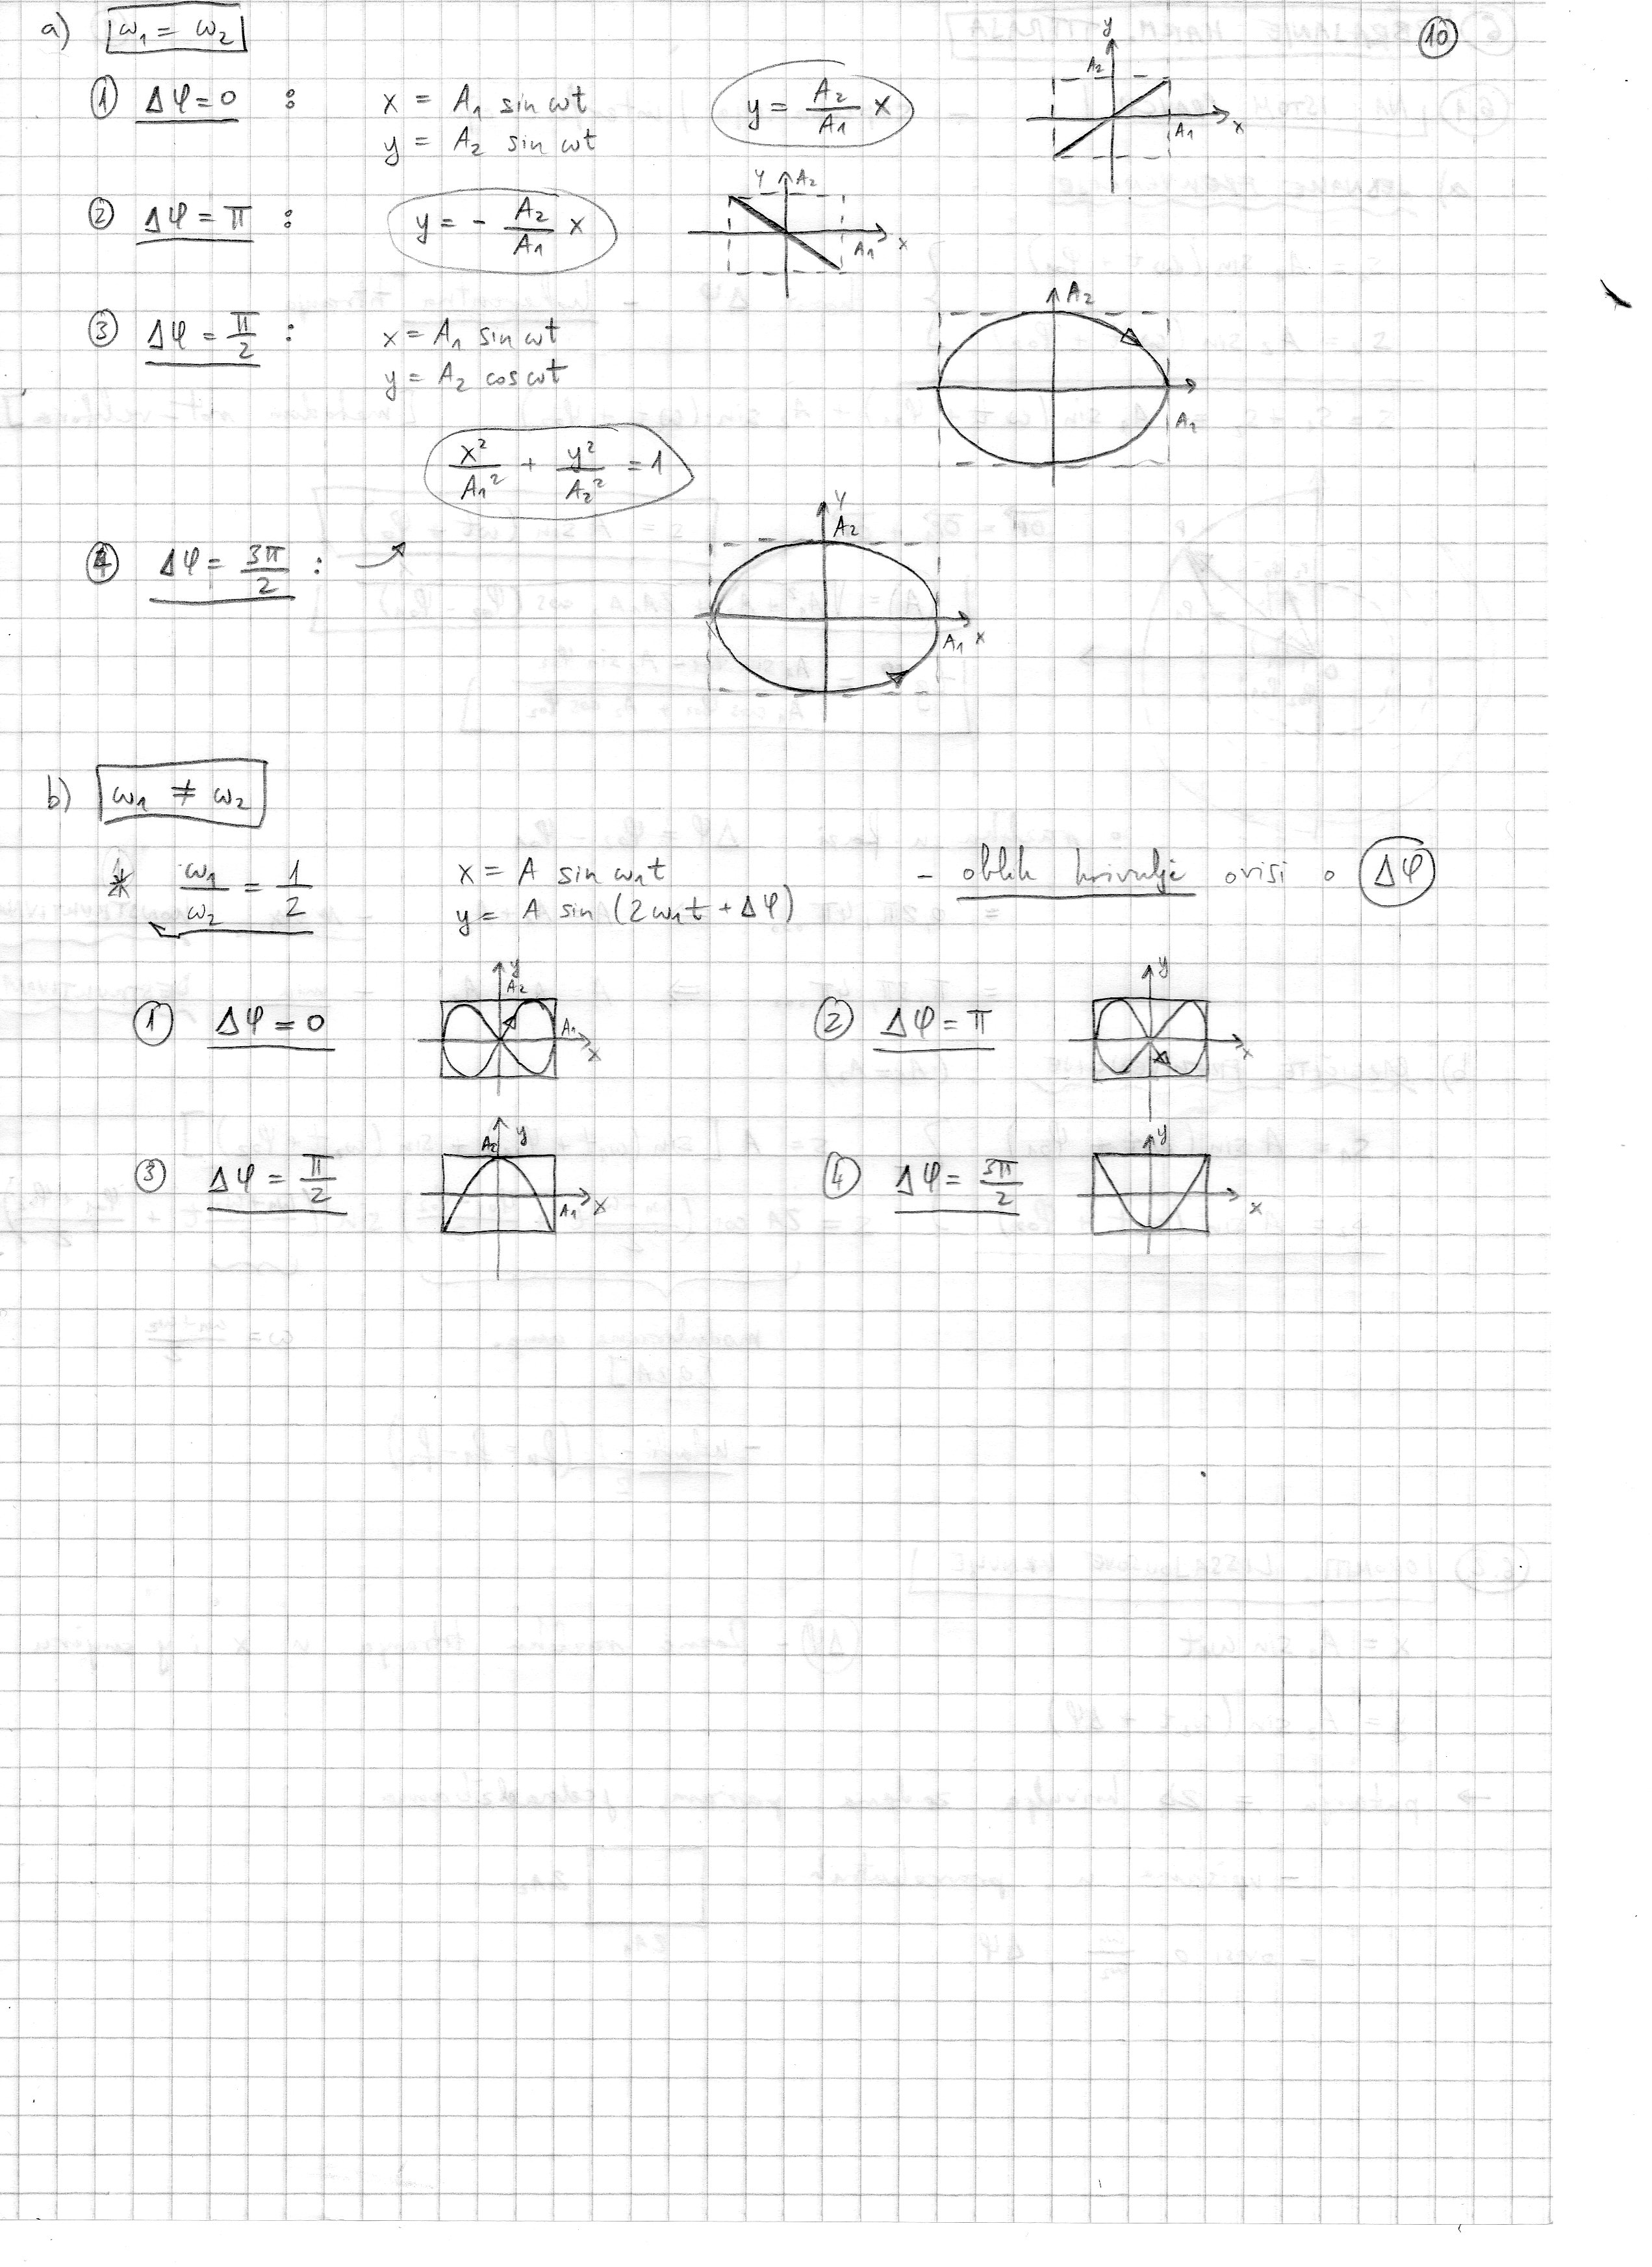 a) ω₁ = ω₂
10
① Δφ = 0 : x = A₁ sin ωt
y = A₂ sin ωt
y = A₂/A₁ x
y A₂ A₁ x
② Δφ = π : y = - A₂/A₁ x
y A₂ A₁ x
③ Δφ = π/2 : x = A₁ sin ωt
y = A₂ cos ωt
A₂ A₁
x²/A₁² + y²/A₂² = 1
④ Δφ = 3π/2 : ↗
y A₂ A₁ x
b) ω₁ ≠ ω₂
* ω₁/ω₂ = 1/2 x = A sin ω₁t
y = A sin (2ω₁t + Δφ)
- oblik krivulje ovisi o Δφ
① Δφ = 0
y A₂ A₁ x
② Δφ = π
y x
③ Δφ = π/2
A₂ y A₁ x
④ Δφ = 3π/2
y x